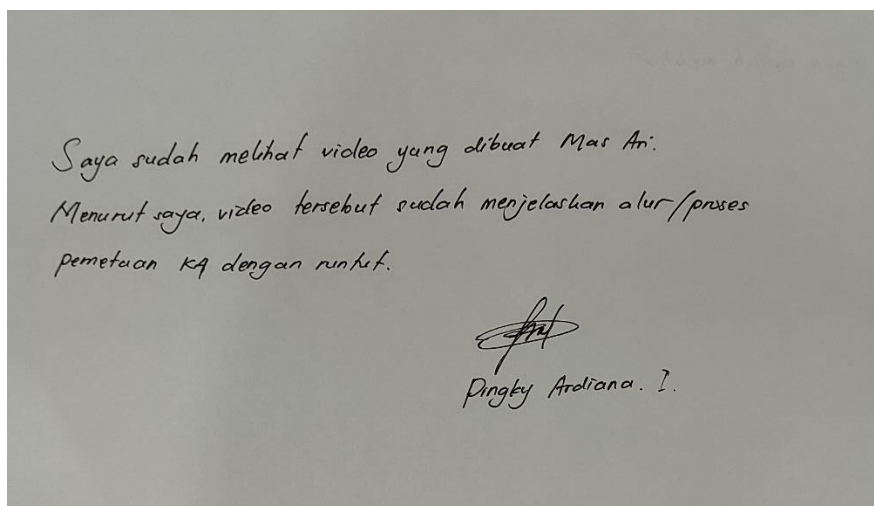 Saya sudah melihat video yang dibuat Mas Ari.
Menurut saya, video tersebut sudah menjelaskan alur/proses
pemetaan KA dengan runtut.
Pingky Ardiana. I.